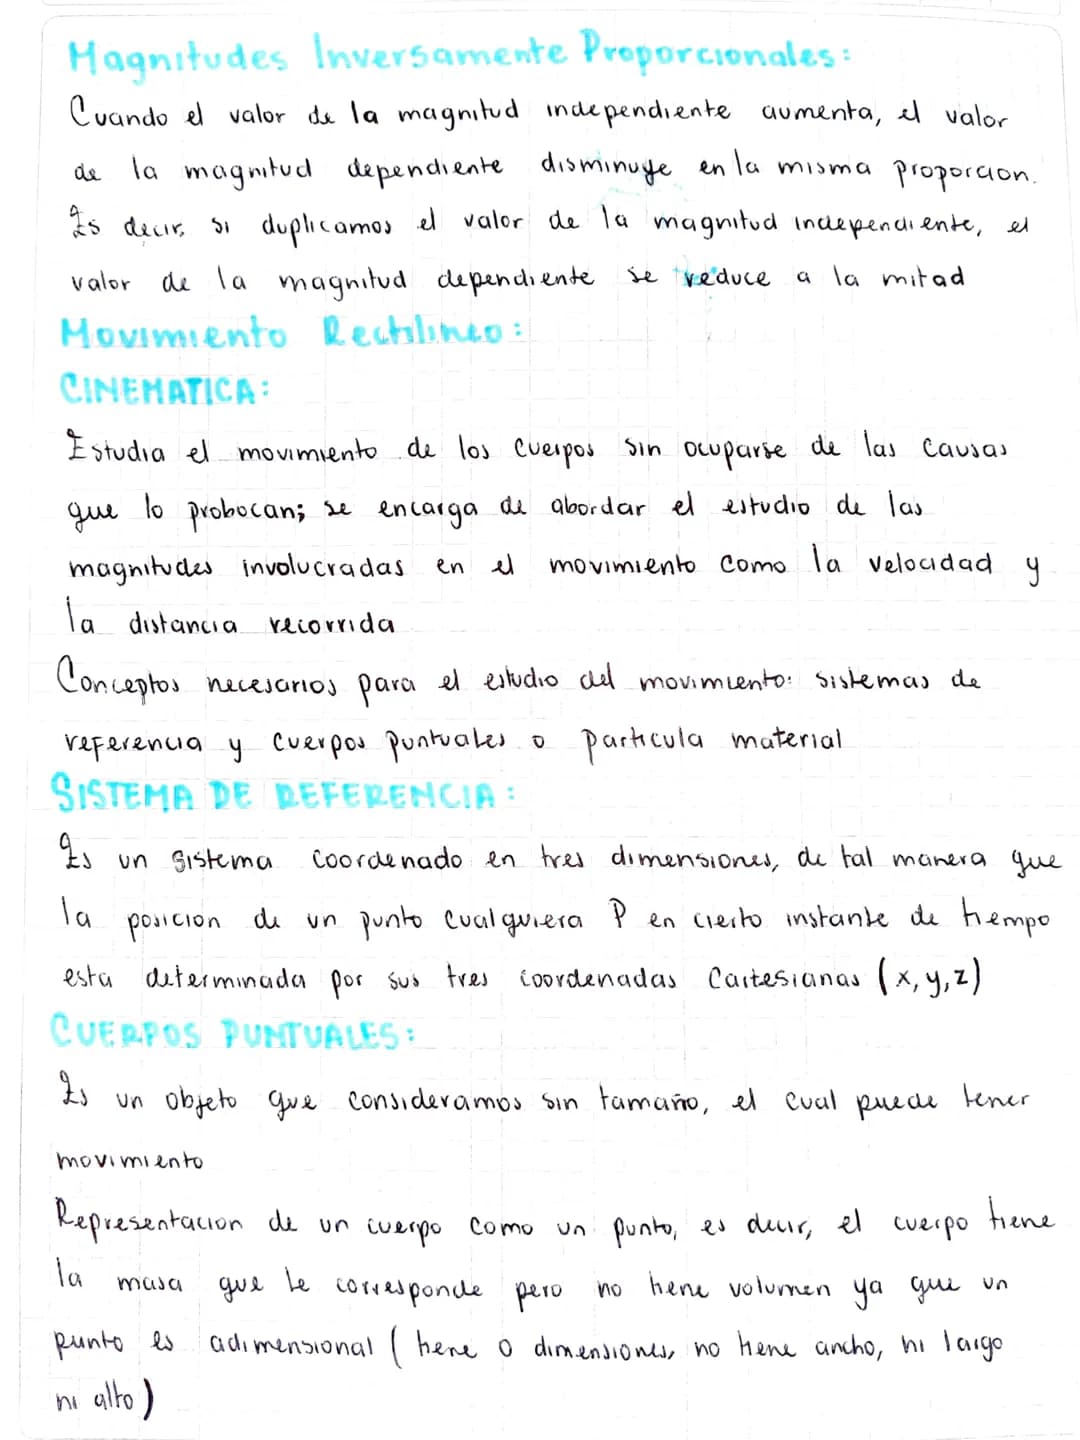 Magnitudes Inversamente Proporcionales:
Cuando el valor de la magnitud independiente aumenta, el valor
de la magnitud dependiente disminuye en la misma proporcion.
Es decir, si duplicamos el valor de la magnitud independiente, el
valor de la magnitud dependiente se reduce a la mitad
Movimiento Rectilineo:
CINEMATICA:
Estudia el movimiento de los cuerpos sin ocuparse de las causas
que lo probocan; se encarga de abordar el estudio de las
magnitudes involucradas en el movimiento como la velocidad y
la distancia recorrida
Conceptos necesarios para el estudio del movimiento: sistemas de
referencia y cuerpos puntuales o particula material
SISTEMA DE REFERENCIA:
Es un sistema coordenado en tres dimensiones, de tal manera que
la posicion de un punto cualquiera P en cierto instante de tiempo
esta determinada por sus tres coordenadas Cartesianas (x, y, z)
CUERPOS PUNTUALES:
Es un objeto que consideramos sin tamaño, el cual puede tener
movimiento
Representacion de un cuerpo como un punto, es decir, el cuerpo tiene
la masa que le corresponde pero no tiene volumen ya que un
punto es adimensional (tiene 0 dimensiones, no tiene ancho, ni largo
ni alto)